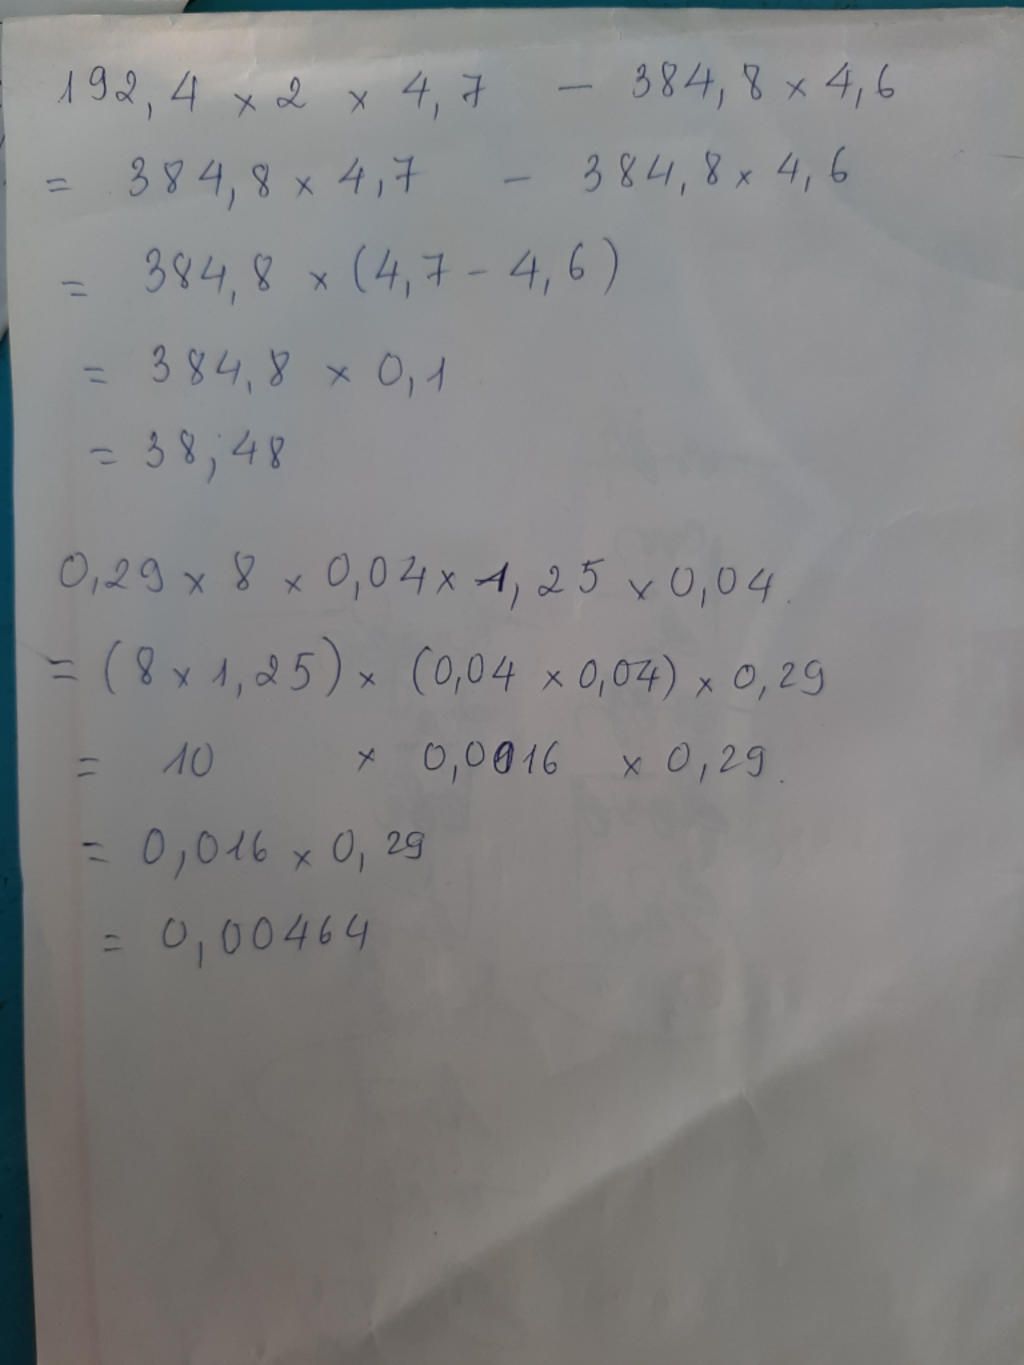 192,4 × 2 × 4,7 – 384,8 × 4,6
= 384,8 × 4,7 – 384,8 × 4,6
= 384,8 × (4,7 – 4,6)
= 384,8 × 0,1
= 38,48
0,29 × 8 × 0,04 × 1,25 × 0,04
= (8 × 1,25) × (0,04 × 0,04) × 0,29
= 10 × 0,0016 × 0,29
= 0,016 × 0,29
= 0,00464